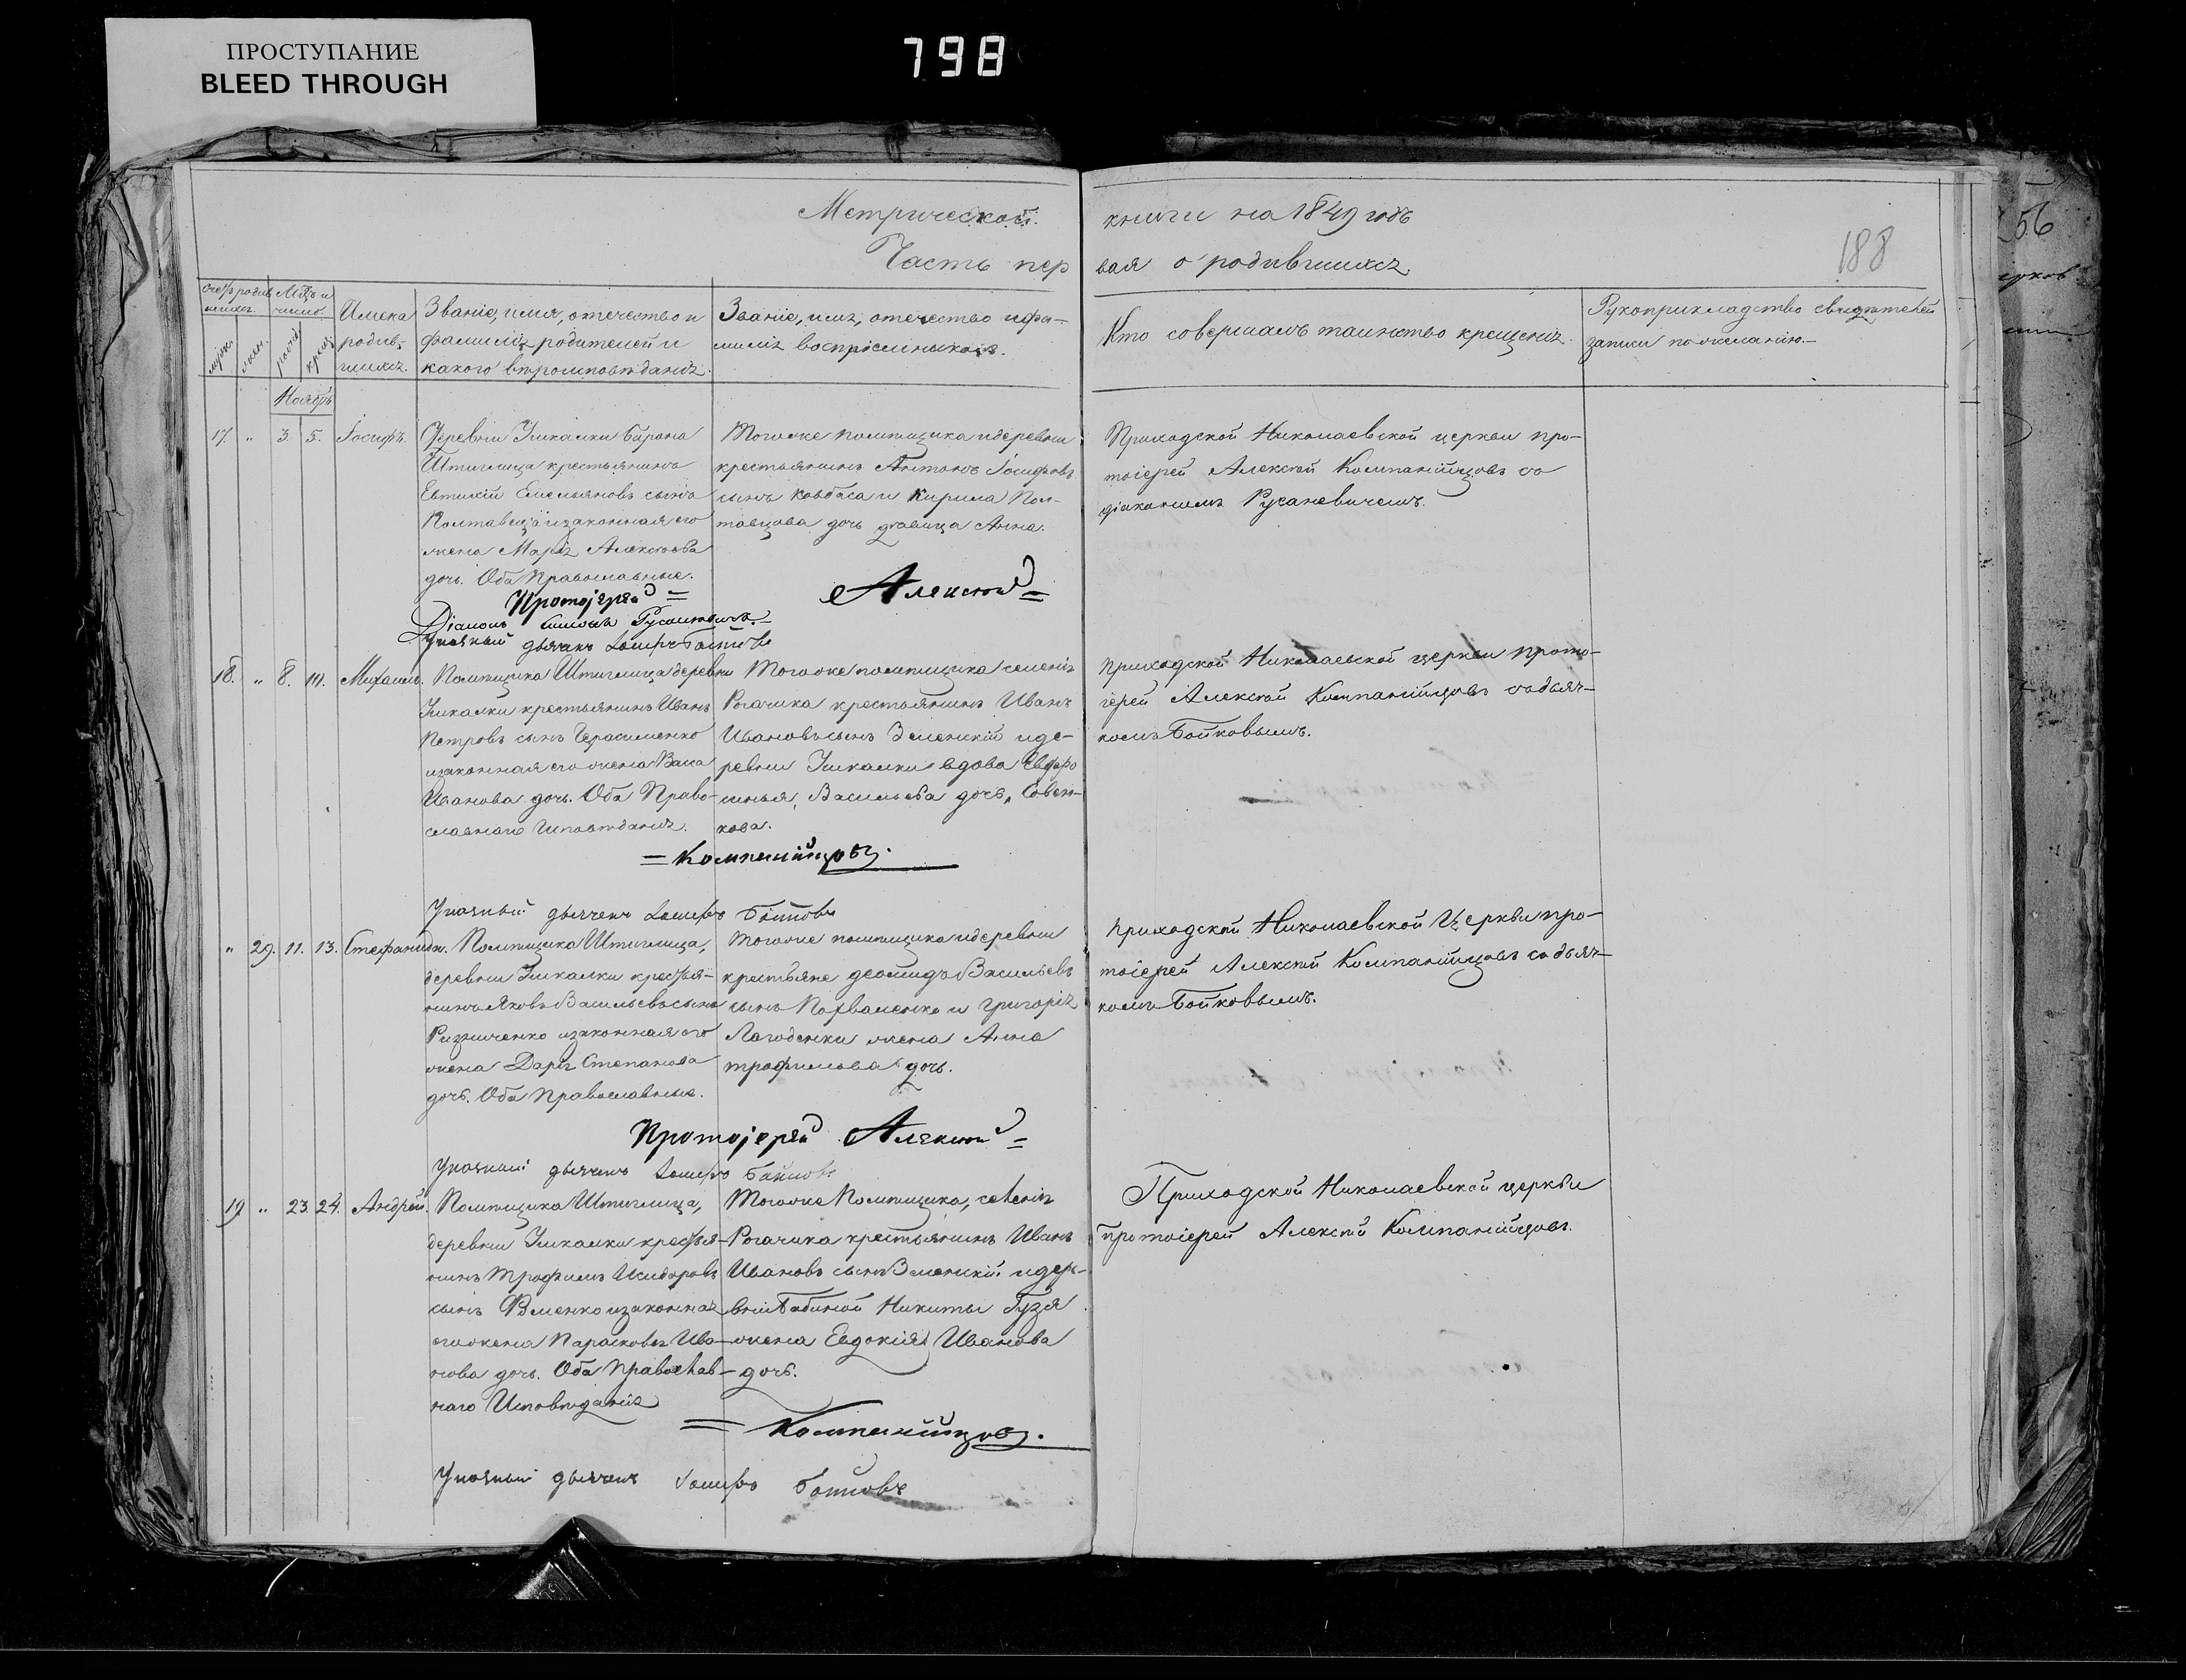 ПРОСТУПАНИЕ
BLEED THROUGH
798
Метрической
книги на 1849 годъ
188
56
Часть пер
вая о родившихся
Мѣц и
число
Имена
родив-
шихся.
Званіе, имя, отечество и
фамилія родителей и
какого вѣроисповѣданія.
Званіе, имя, отечество и фа-
милія воспріемниковъ.
Кто совершалъ таинство крещенія.
Рукоприкладство свидѣтелей
записи по желанію.
Ноябрь
17. " 3. 5. Іосифъ.
Деревни Ушкалки Барона
Штиглица крестьянинъ
Евтихій Емельяновъ сынъ
Полтавецъ и законная его
жена Марія Алексѣева
дочь. Оба православные.
Тогоже помѣщика и деревни
крестьянинъ Антонъ Іосифовъ
сынъ Ковбаса и Кирила Пол-
тавцова дочь дѣвица Анна.
Приходской Николаевской церкви про-
тоіерей Алексѣй Компанійцовъ со
діакономъ Русаневичемъ.
Протоіерей Алексѣй
Діаконъ Русаневичъ.
Указный дьячекъ Іосифъ Бойковъ
18. " 8. 10. Михаилъ.
Помѣщика Штиглица деревни
Ушкалки крестьянинъ Иванъ
Петровъ сынъ Герасименко
и законная его жена Васа
Иванова дочь. Оба Право-
славнаго Исповѣданія.
Тогоже помѣщика селенія
Рогачика крестьянинъ Иванъ
Ивановъ сынъ Зеленскій и де-
ревни Ушкалки вдова Евфро
синья, Васильева дочь,
кова.
Приходской Николаевской церкви прото-
іерей Алексѣй Компанійцовъ со дьяч-
комъ Бойковымъ.
Компанійцовъ.
Указный дьячекъ Іосифъ Бойковъ
" 29. 11. 13. Стефанида.
Помѣщика Штиглица,
деревни Ушкалки крестья-
нинъ Яковъ Васильевъ сынъ
Ризниченко и законная его
жена Дарія Степанова
дочь. Оба православные.
Тогоже помѣщика и деревни
крестьяне Деомидъ Васильевъ
сынъ Похваленко и Григорія
Лагоденки жена Анна
Трофимова дочь.
Приходской Николаевской Церкви про-
тоіерей Алексѣй Компанійцовъ со дьяч-
комъ Бойковымъ.
Протоіерей Алексѣй
Указный дьячекъ Іосифъ Бойковъ
19 " 23. 24. Андрей.
Помѣщика Штиглица,
деревни Ушкалки крестья-
нинъ Трофимъ Исидоровъ
сынъ и законная
его жена Парасковія Ива-
нова дочь. Оба Православ-
наго Исповѣданія
Тогоже Помѣщика, селенія
Рогачика крестьянинъ Иванъ
Ивановъ сынъ Зеленскій и дер-
вни Бабиной Никиты Гузя
жена Евдокія Иванова
дочь.
Приходской Николаевской церкви
протоіерей Алексѣй Компанійцовъ.
Компанійцовъ.
Указный дьячекъ Іосифъ Бойковъ